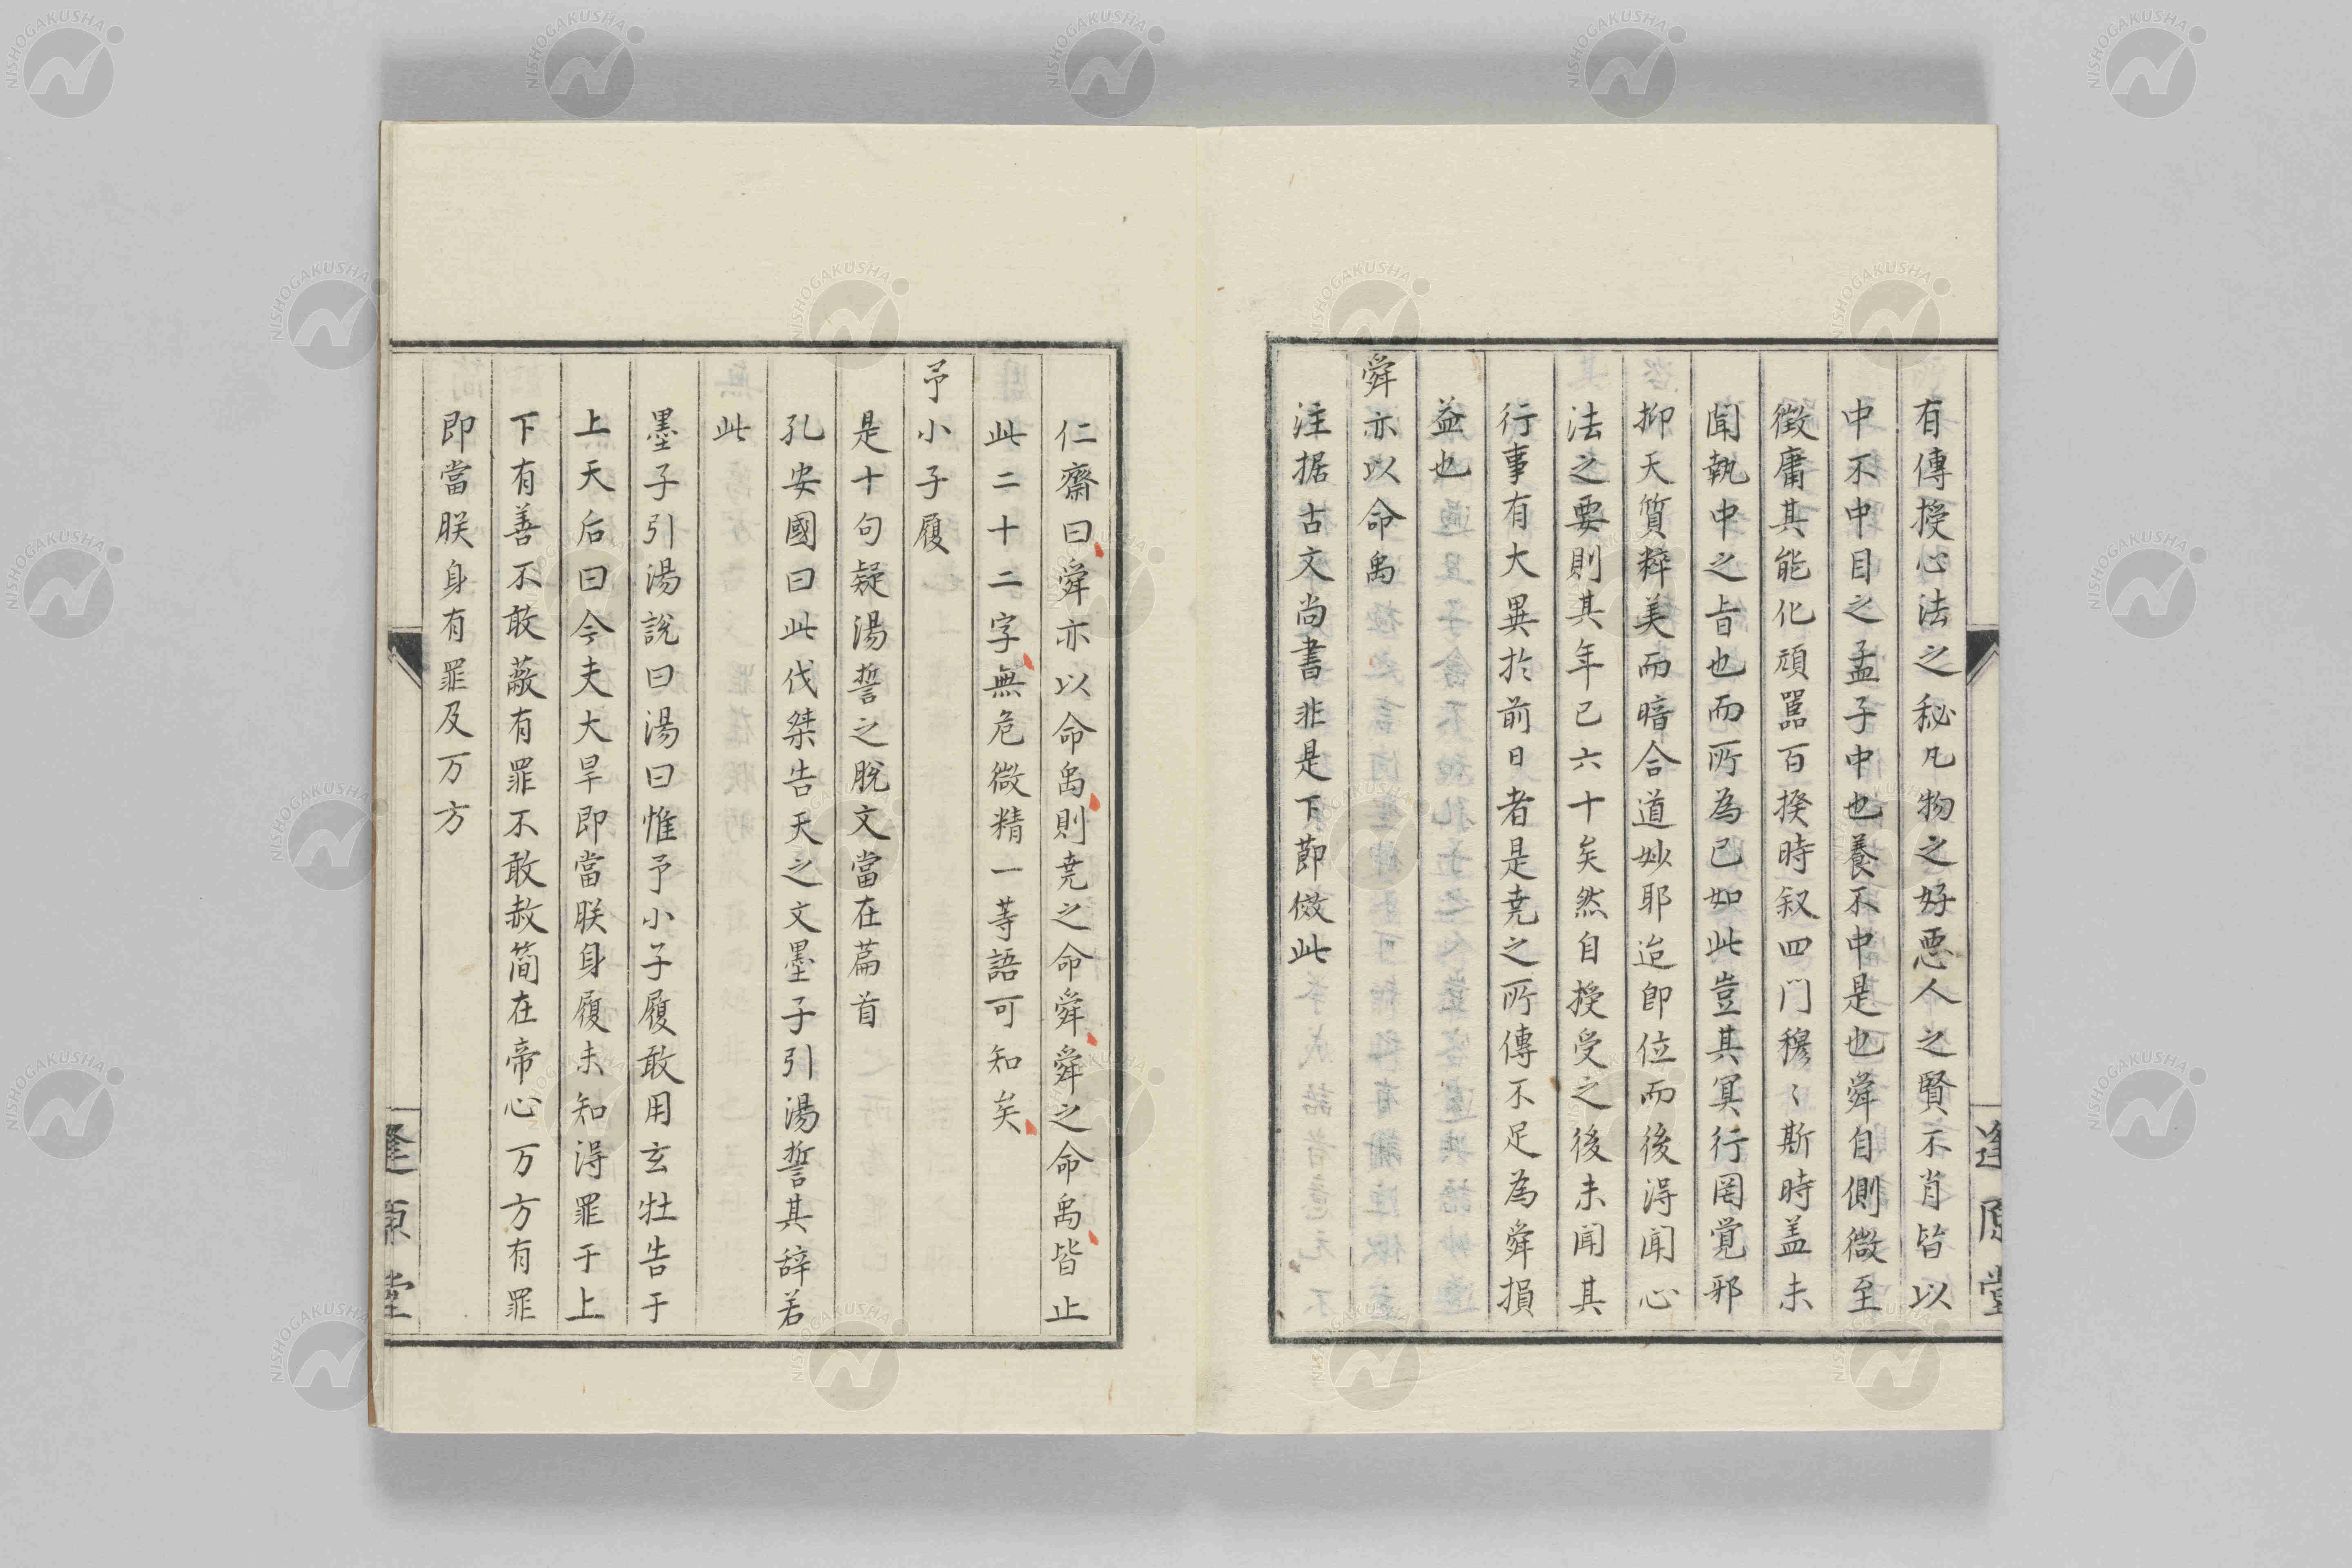 有傳授心法之秘凡物之好悪人之賢不肖皆以
中不中目之孟子中也養不中是也舜自側微至
徴庸其能化頑嚚百揆時叙四門穆〻斯時盖未
聞執中之旨也而所為已如此豈其冥行罔覚邪
抑天質粹美而暗合道妙耶迨即位而後得聞心
法之要則其年已六十矣然自授受之後未聞其
行事有大異於前日者是尭之所傳不足為舜損
益也
舜亦以命禹
注据古文尚書非是下節倣此
逢原堂
仁齋曰舜亦以命禹則尭之命舜舜之命禹皆止
此二十二字無危微精一等語可知矣
予小子履
是十句疑湯誓之脫文當在篇首
孔安國曰此伐桀告天之文墨子引湯誓其辞若
此
墨子引湯說曰湯曰惟予小子履敢用玄牡告于
上天后曰今夫大旱即當朕身履未知得罪于上
下有善不敢蔽有罪不敢赦簡在帝心万方有罪
即當朕身有罪及万方
逢原堂
NISHOGAKUSHA